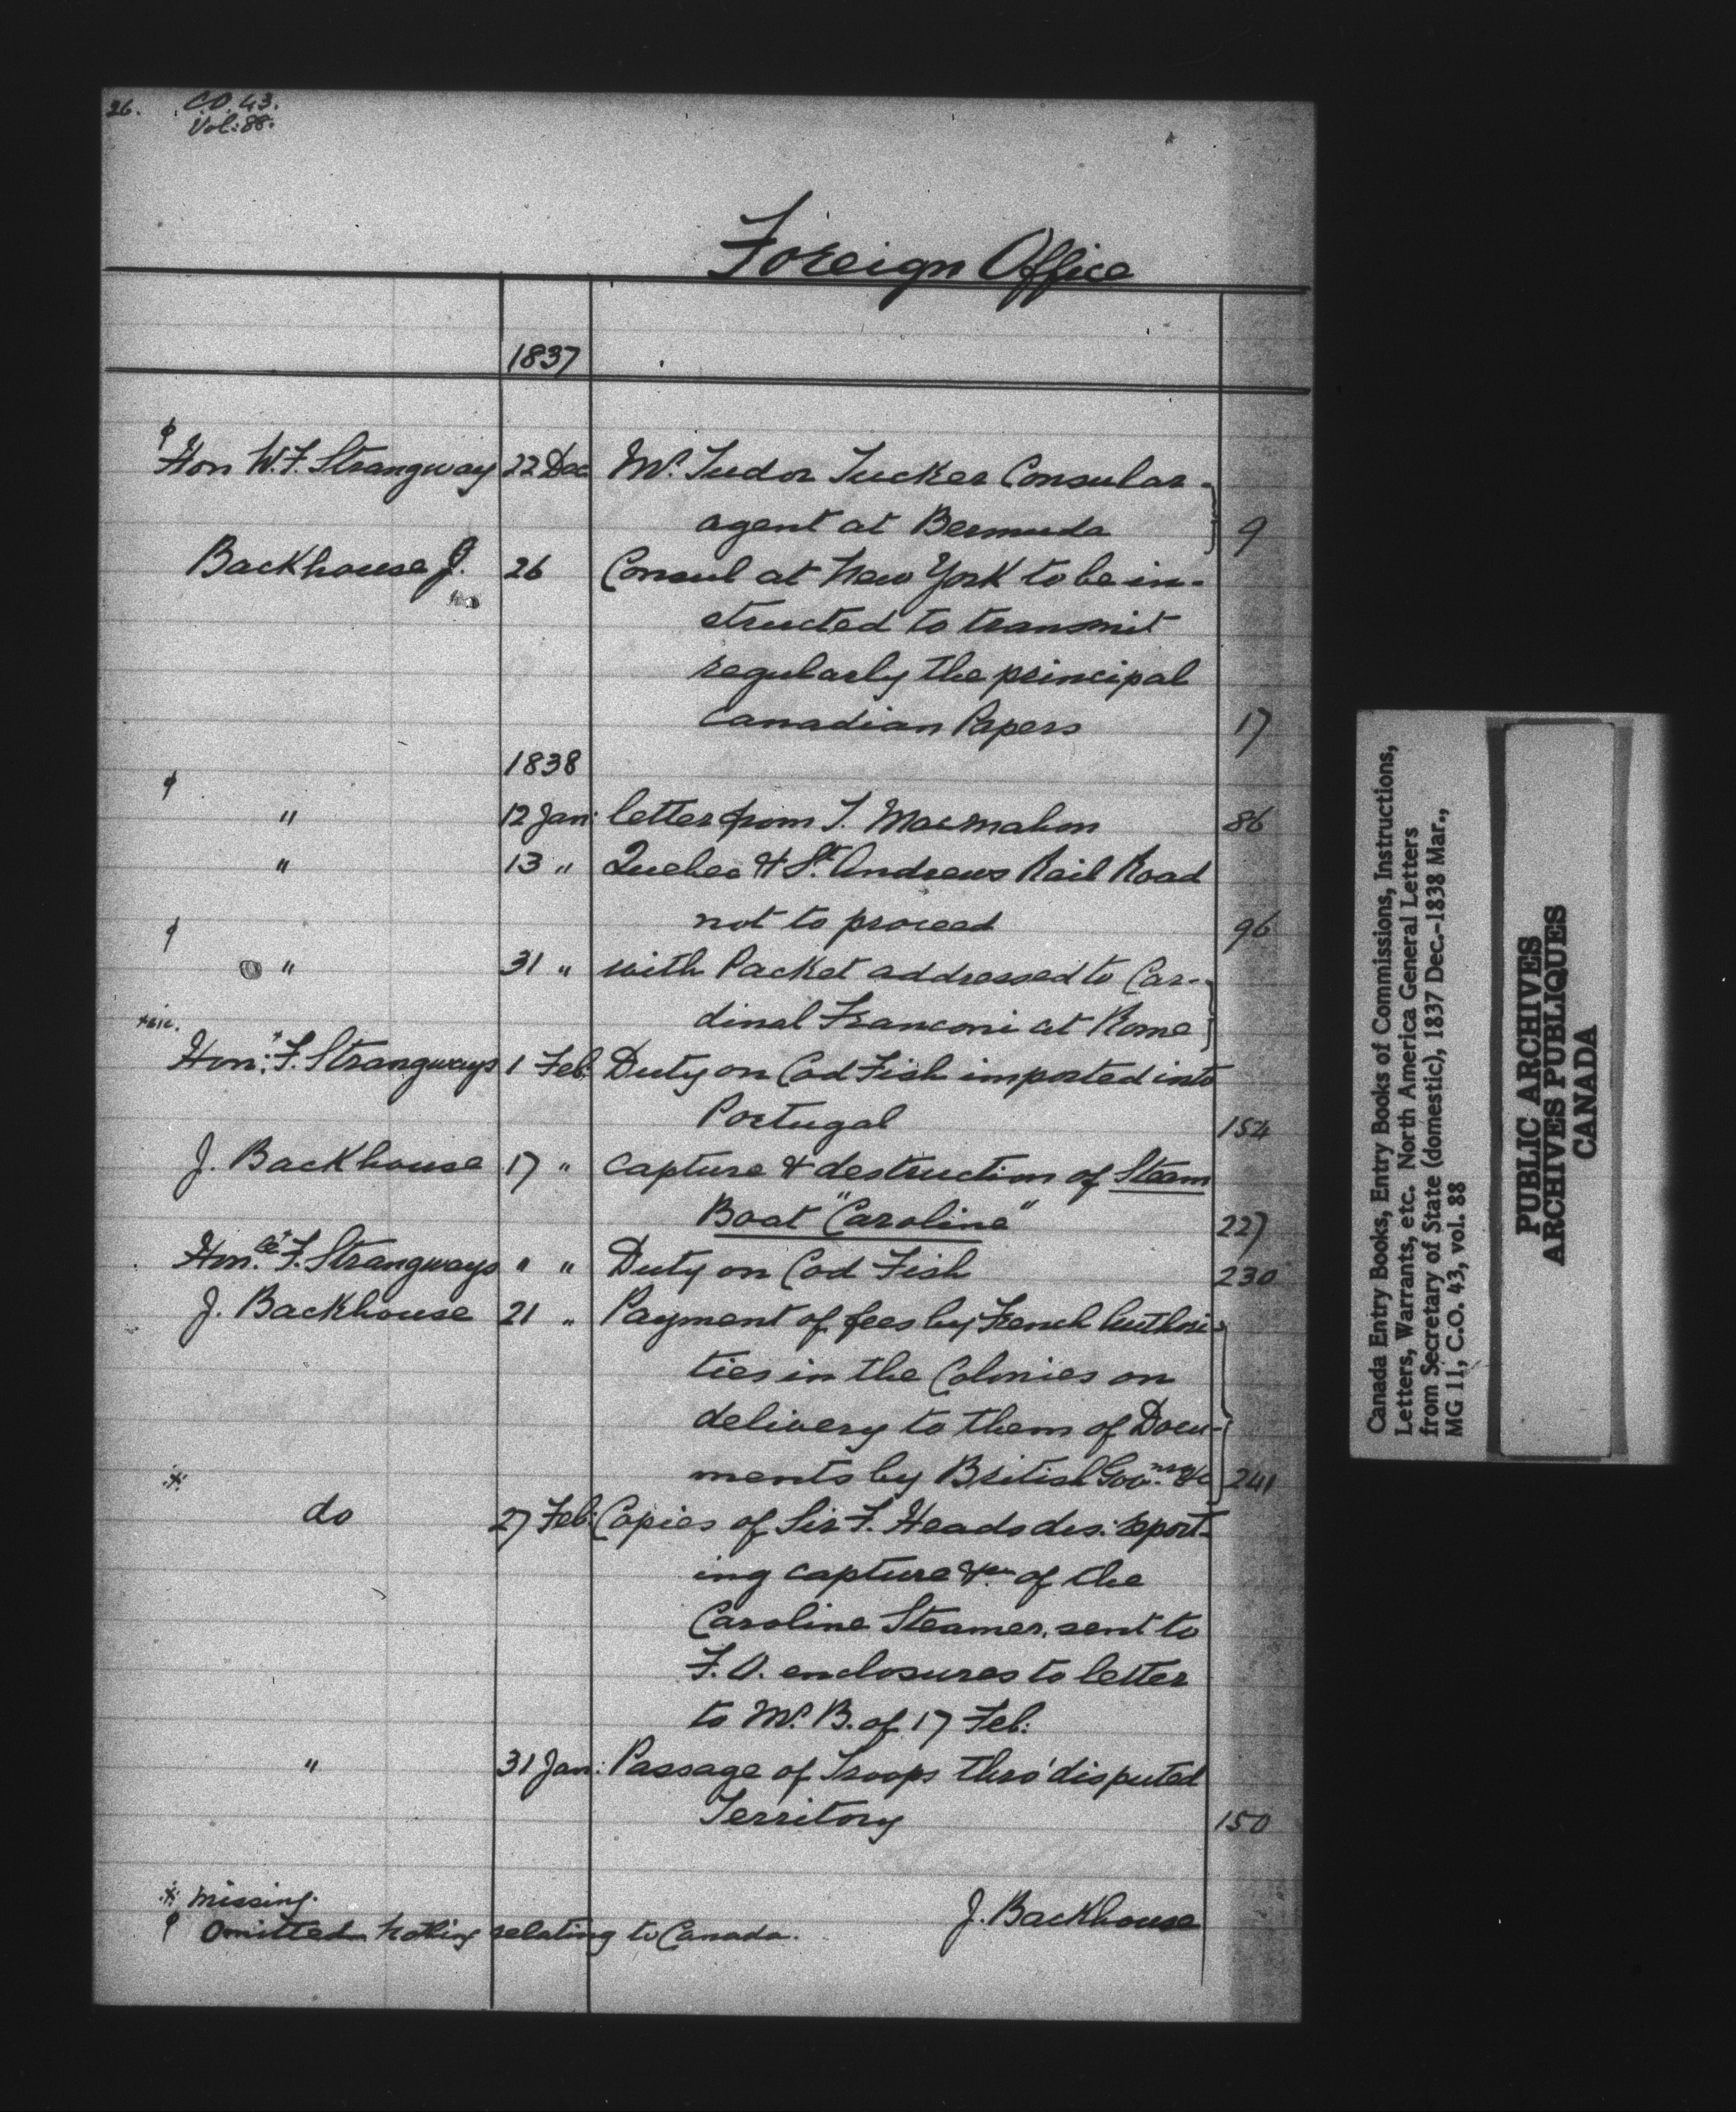 26. C.O. 43.
Vol: 88.
Foreign Office
1837
φ
Hon W. F. Strangway 22 Dec Mr. Tudor Tucker Consular
agent at Bermuda 9
Backhouse J. 26 Consul at New York to be in-
structed to transmit
regularly the principal
Canadian Papers 17
1838
φ
" 12 Jan: letter from T. Macmahon 86
" 13 " Quebec & St. Andrews Rail Road
not to proceed 96
φ
" 31 " with Packet addressed to Car-
dinal Franconi at Rome
+sic.
Hon: + F. Strangways 1 Feb: Duty on Cod Fish imported into
Portugal 154
J. Backhouse 17 " Capture & destruction of Steam
Boat "Caroline" 227
Honble. + F. Strangways " " Duty on Cod Fish 230
J. Backhouse 21 " Payment of fees by French Authori-
ties in the Colonies on
delivery to them of Docu-
ments by British Govnrs. &c 241
※
do 27 Feb: Copies of Sir F. Heads des: report-
ing capture &ca. of the
Caroline Steamer, sent to
F. O. enclosures to letter
to Mr. B. of 17 Feb:
" 31 Jan: Passage of Troops thro' disputed
Territory 150
※ missing.
φ Omitted Nothing relating to Canada.
J. Backhouse
Canada Entry Books, Entry Books of Commissions, Instructions,
Letters, Warrants, etc. North America General Letters
from Secretary of State (domestic), 1837 Dec.-1838 Mar.,
MG 11, C.O. 43, vol. 88
PUBLIC ARCHIVES
ARCHIVES PUBLIQUES
CANADA